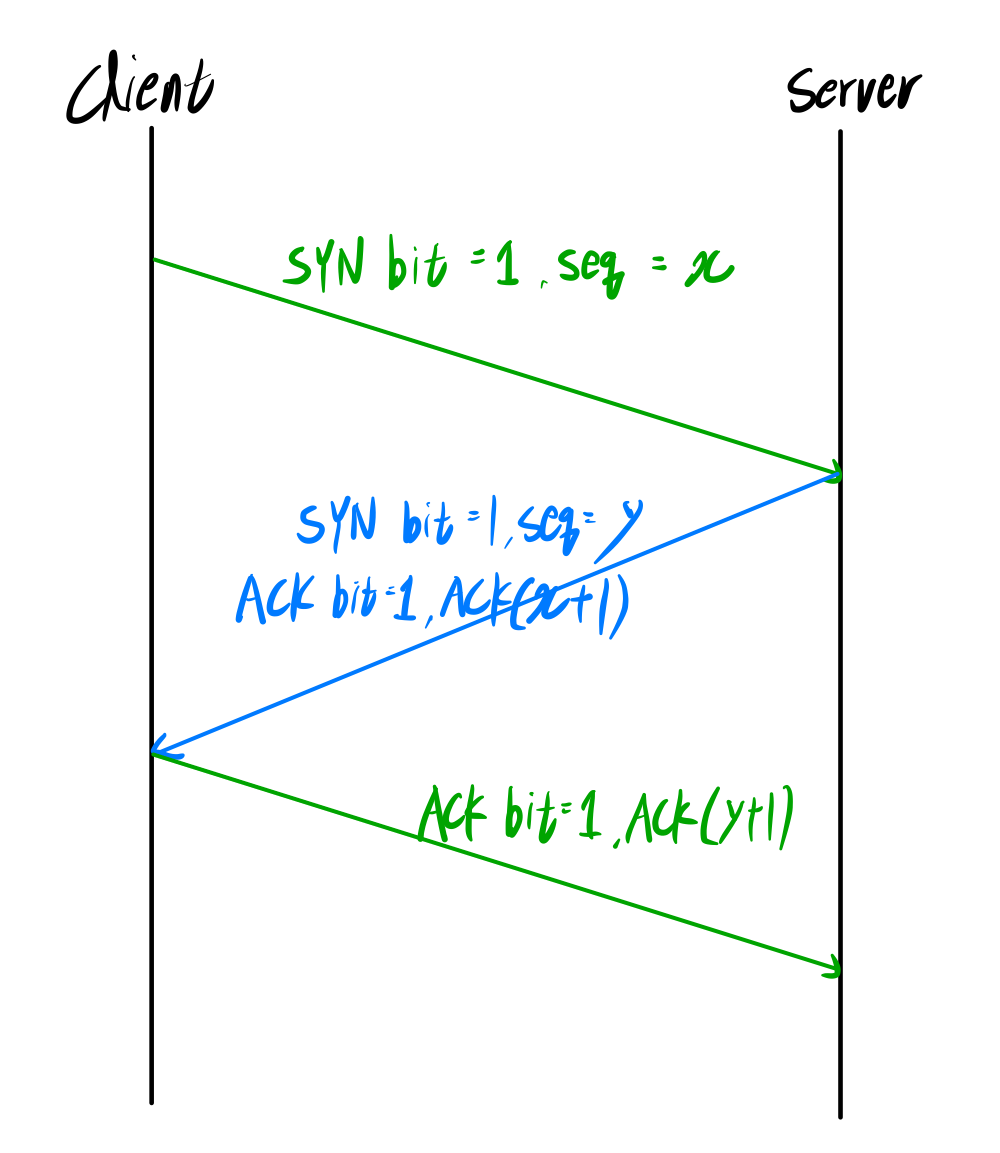 Client
Server
SYN bit = 1, seq = x
SYN bit = 1, seq = y
ACK bit = 1, ACK(x+1)
ACK bit = 1, ACK(y+1)